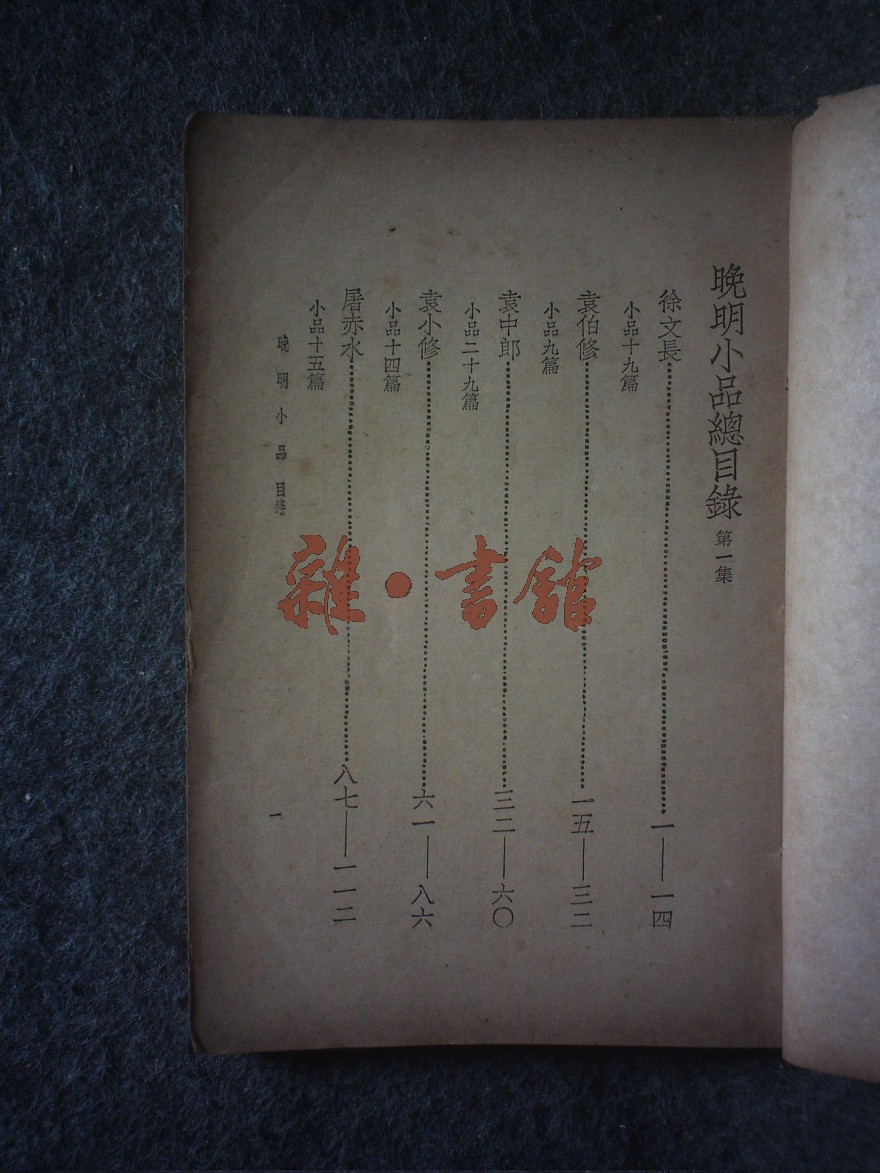 晚明小品總目錄 第一集
徐文長 一——一四
小品十九篇
袁伯修 一五——三二
小品九篇
袁中郎 三二——六〇
小品二十九篇
袁小修 六一——八六
小品十四篇
屠赤水 八七——一一二
小品十五篇
晚明小品目錄 一
雜·書館